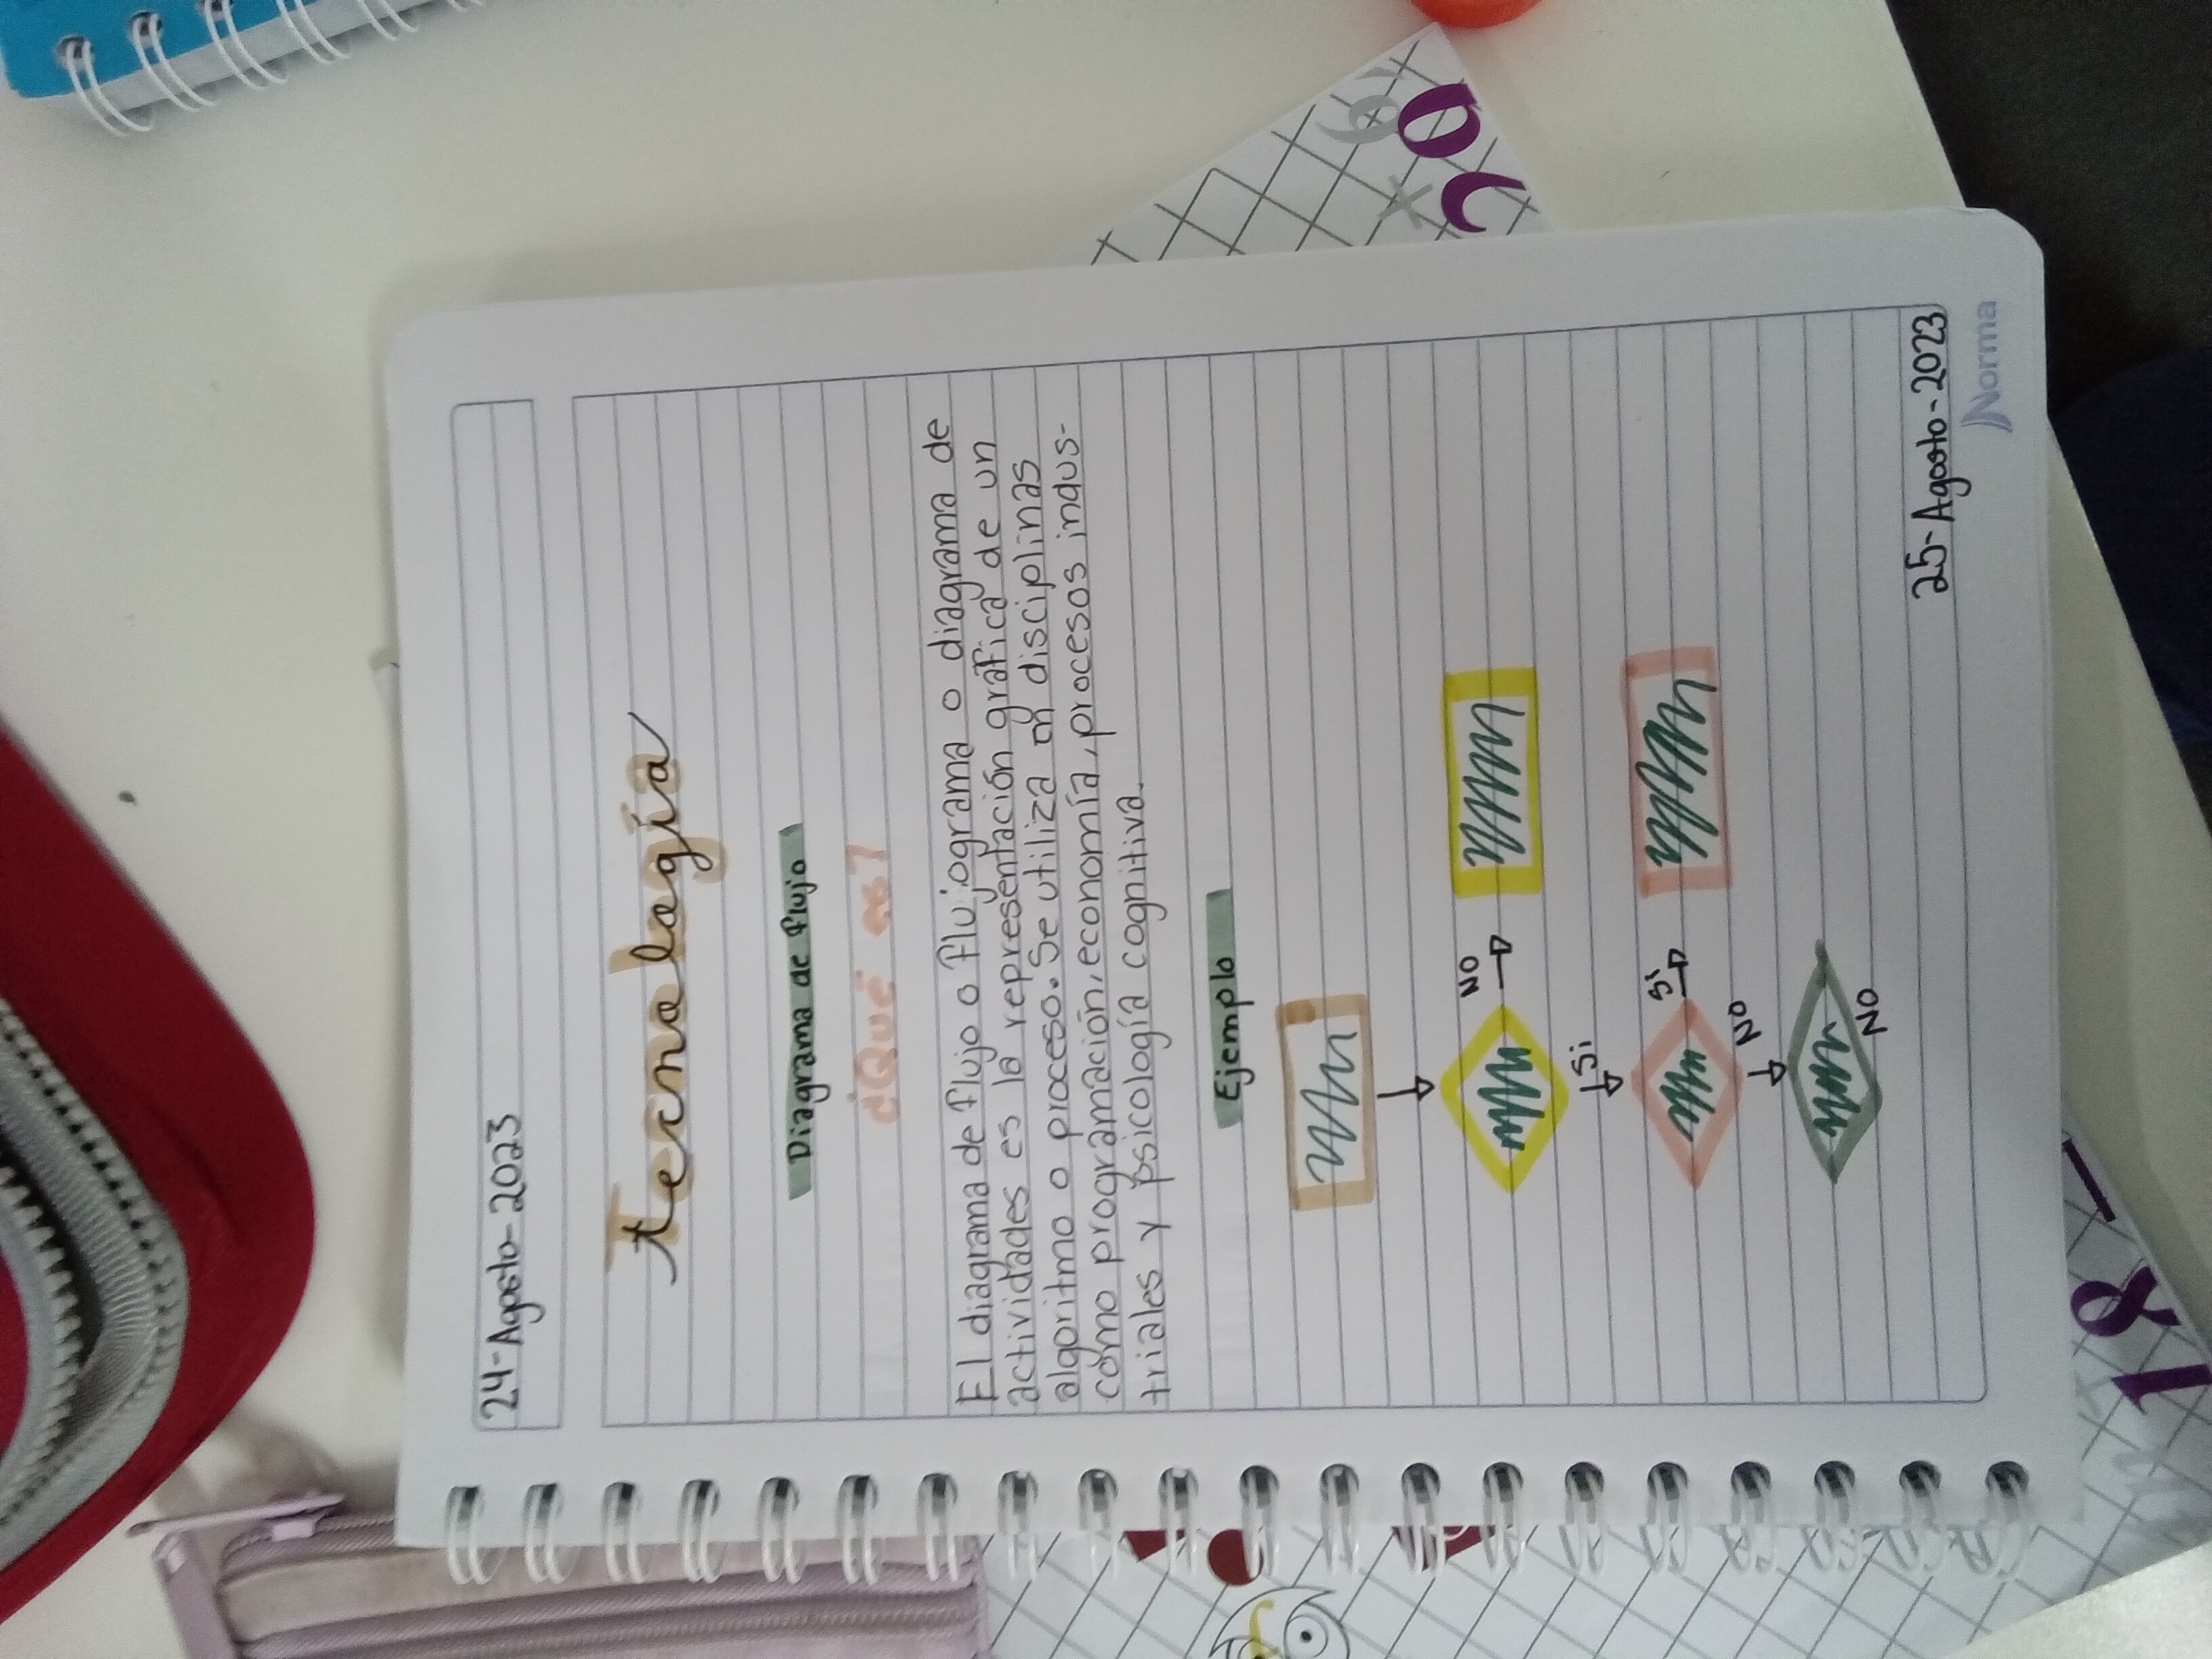 24-Agosto-2023
Tecnología
Diagrama de flujo
¿Qué es?
El diagrama de flujo o flujograma o diagrama de
actividades es la representación gráfica de un
algoritmo o proceso. Se utiliza en disciplinas
como programación, economía, procesos indus-
triales y psicología cognitiva.
Ejemplo
NO
Si
Si
NO
NO
25-Agosto-2023
Norma
18-